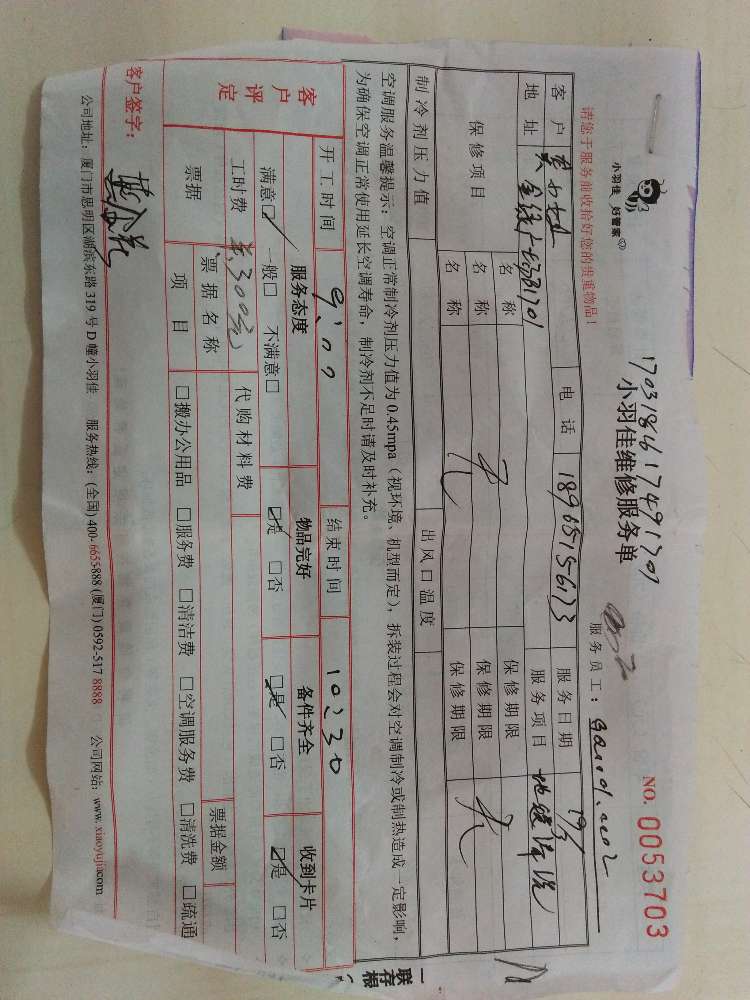 小羽佳 好管家
170318617491701
小羽佳维修服务单
NO. 0053703
请您于服务前收拾好您的贵重物品!
服务员工:
客户 黄女士 电话 18965156173 服务日期 19/3
地址 服务项目 地毯清洗
保修项目 名称 无 保修期限 无
名称 保修期限
名称 保修期限
制冷剂压力值 出风口温度
空调服务温馨提示:空调正常制冷剂压力值为 0.45mpa(视环境、机型而定),拆装过程会对空调制冷或制热造成一定影响,
为确保空调正常使用延长空调寿命,制冷剂不足时请及时补充。
开工时间 9:00 结束时间 10:30
客户评定 服务态度 物品完好 备件齐全 收到卡片
满意☑ 一般□ 不满意□ ☑是 □否 ☑是 □否 ☑是 □否
工时费 300元 代购材料费
票据 票据名称 票据金额
项目 □搬办公用品 □服务费 □清洁费 □空调服务费 □清洗费 □疏通
客户签字:
公司地址:厦门市思明区湖滨东路 319 号 D 幢小羽佳 服务热线:(全国) 400-6655888 (厦门) 0592-517 8888 公司网站:www.xiaoyujia.com
一联存根